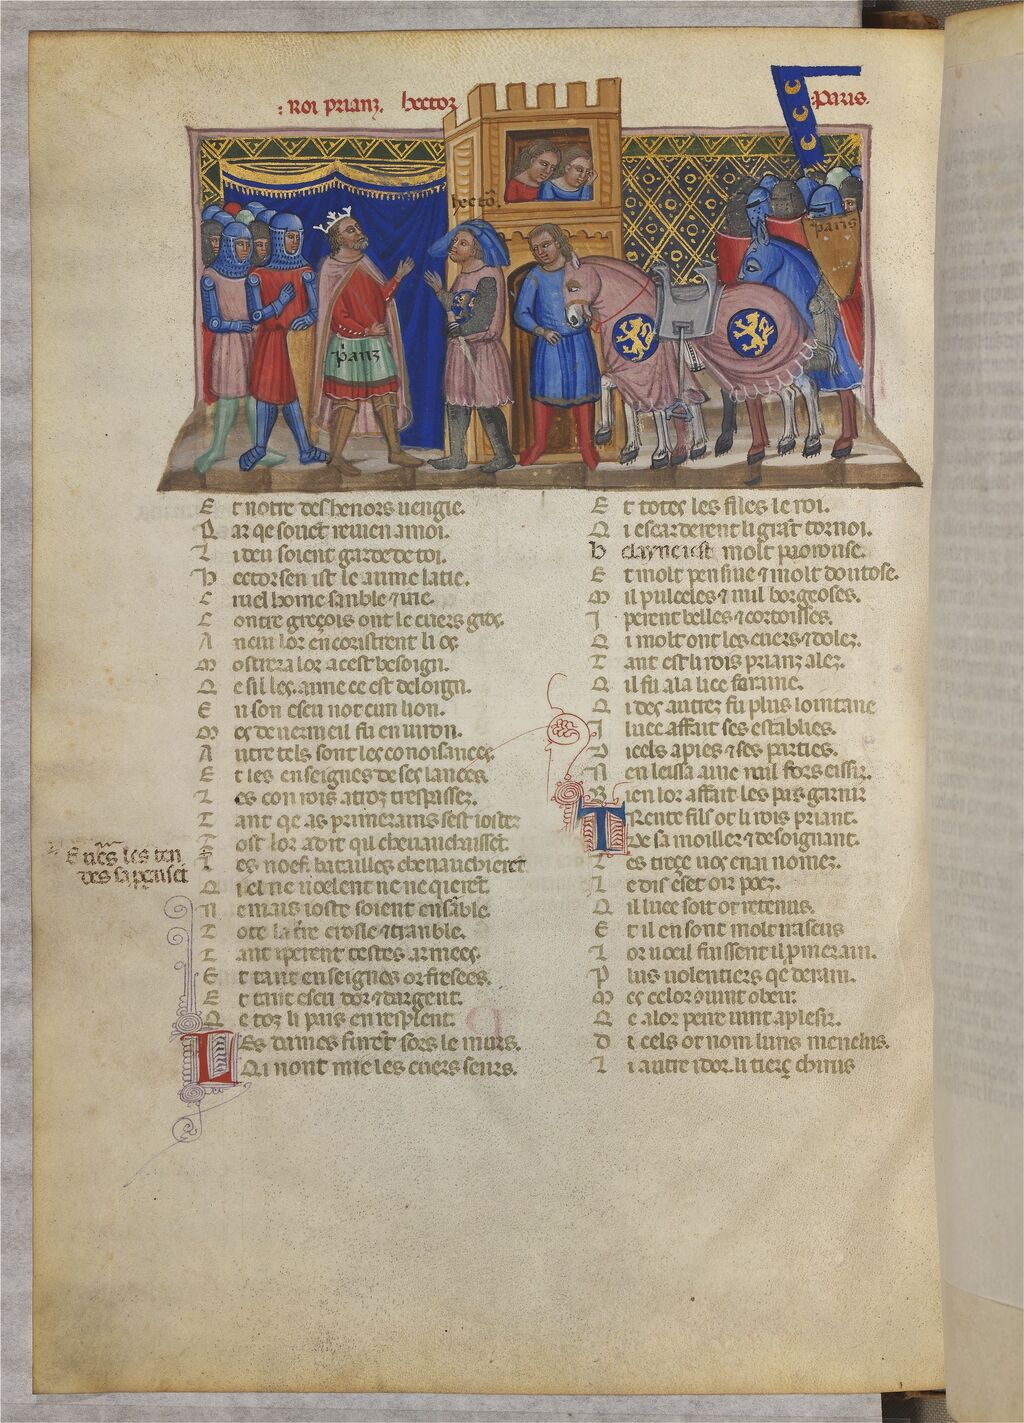 : Roi prianz. hector
: paris.
hector.
paris
prianz
E t notre deshenors uengie.
P ar qe sonet reuien amoi.
L i deu soient garde de toi.
H ector sen ist le anme latie.
C ruel home sanble & uie.
C ontre greçois ont le cuers gros.
A
M ostrera lor a cest besoign.
Q e sil les anme ce est de loign.
E n son escu not cun lion.
M es de uermeil fu enuiron.
A utre tels sont les conoisances
E t les enseignes de ses lances.
L es conrois a toz trespassez.
T ant qe as primerains sest iostez
T ost lor a dit qil cheuauchissent
L es noef batailles cheuauchierent
Q i el ne uoelent ne ne qierent.
N e mais ioste soient ensanble.
T ote la tre crosle & tranble.
T ant iperent testes armees.
E t tant enseignes orfresees.
E t tant escu dor & dargent.
Q e toz li pais en resplent.
L Es dames furent sors le murs.
Q i nont mie les cuers seurs.
E t totes les filles le roi.
Q i esgarderent li grant tornoi.
H elayne i est molt paorouse.
E t molt pensiue & molt doutose.
M il pulceles & mil borgeoses.
I perent belles & cortoisses.
Q i molt ont les cuers & dolez.
T ant est li rois prianz alez.
Q il fu ala lice foraine.
Q i des autrez fu plus lointane
I luec affait ses establies.
D icels apies & ses parties.
N en leissa aine nul fors eissir.
B ien lor affait les pas garnir
T Rente fils ot li rois priant.
De sa moiller & de soignant.
L es treçe uos en ai nomez.
L e dis e set oir poez.
Q il luec soit ot retenus.
E t il en sont molt irascus
L or uoeil fuissent il primerain.
P lus uolentiers qe derain.
M es celor
Q e alor pere uunt aplesir.
D i cels ot nom luns menelus.
L i autre idor. li tierç chirus